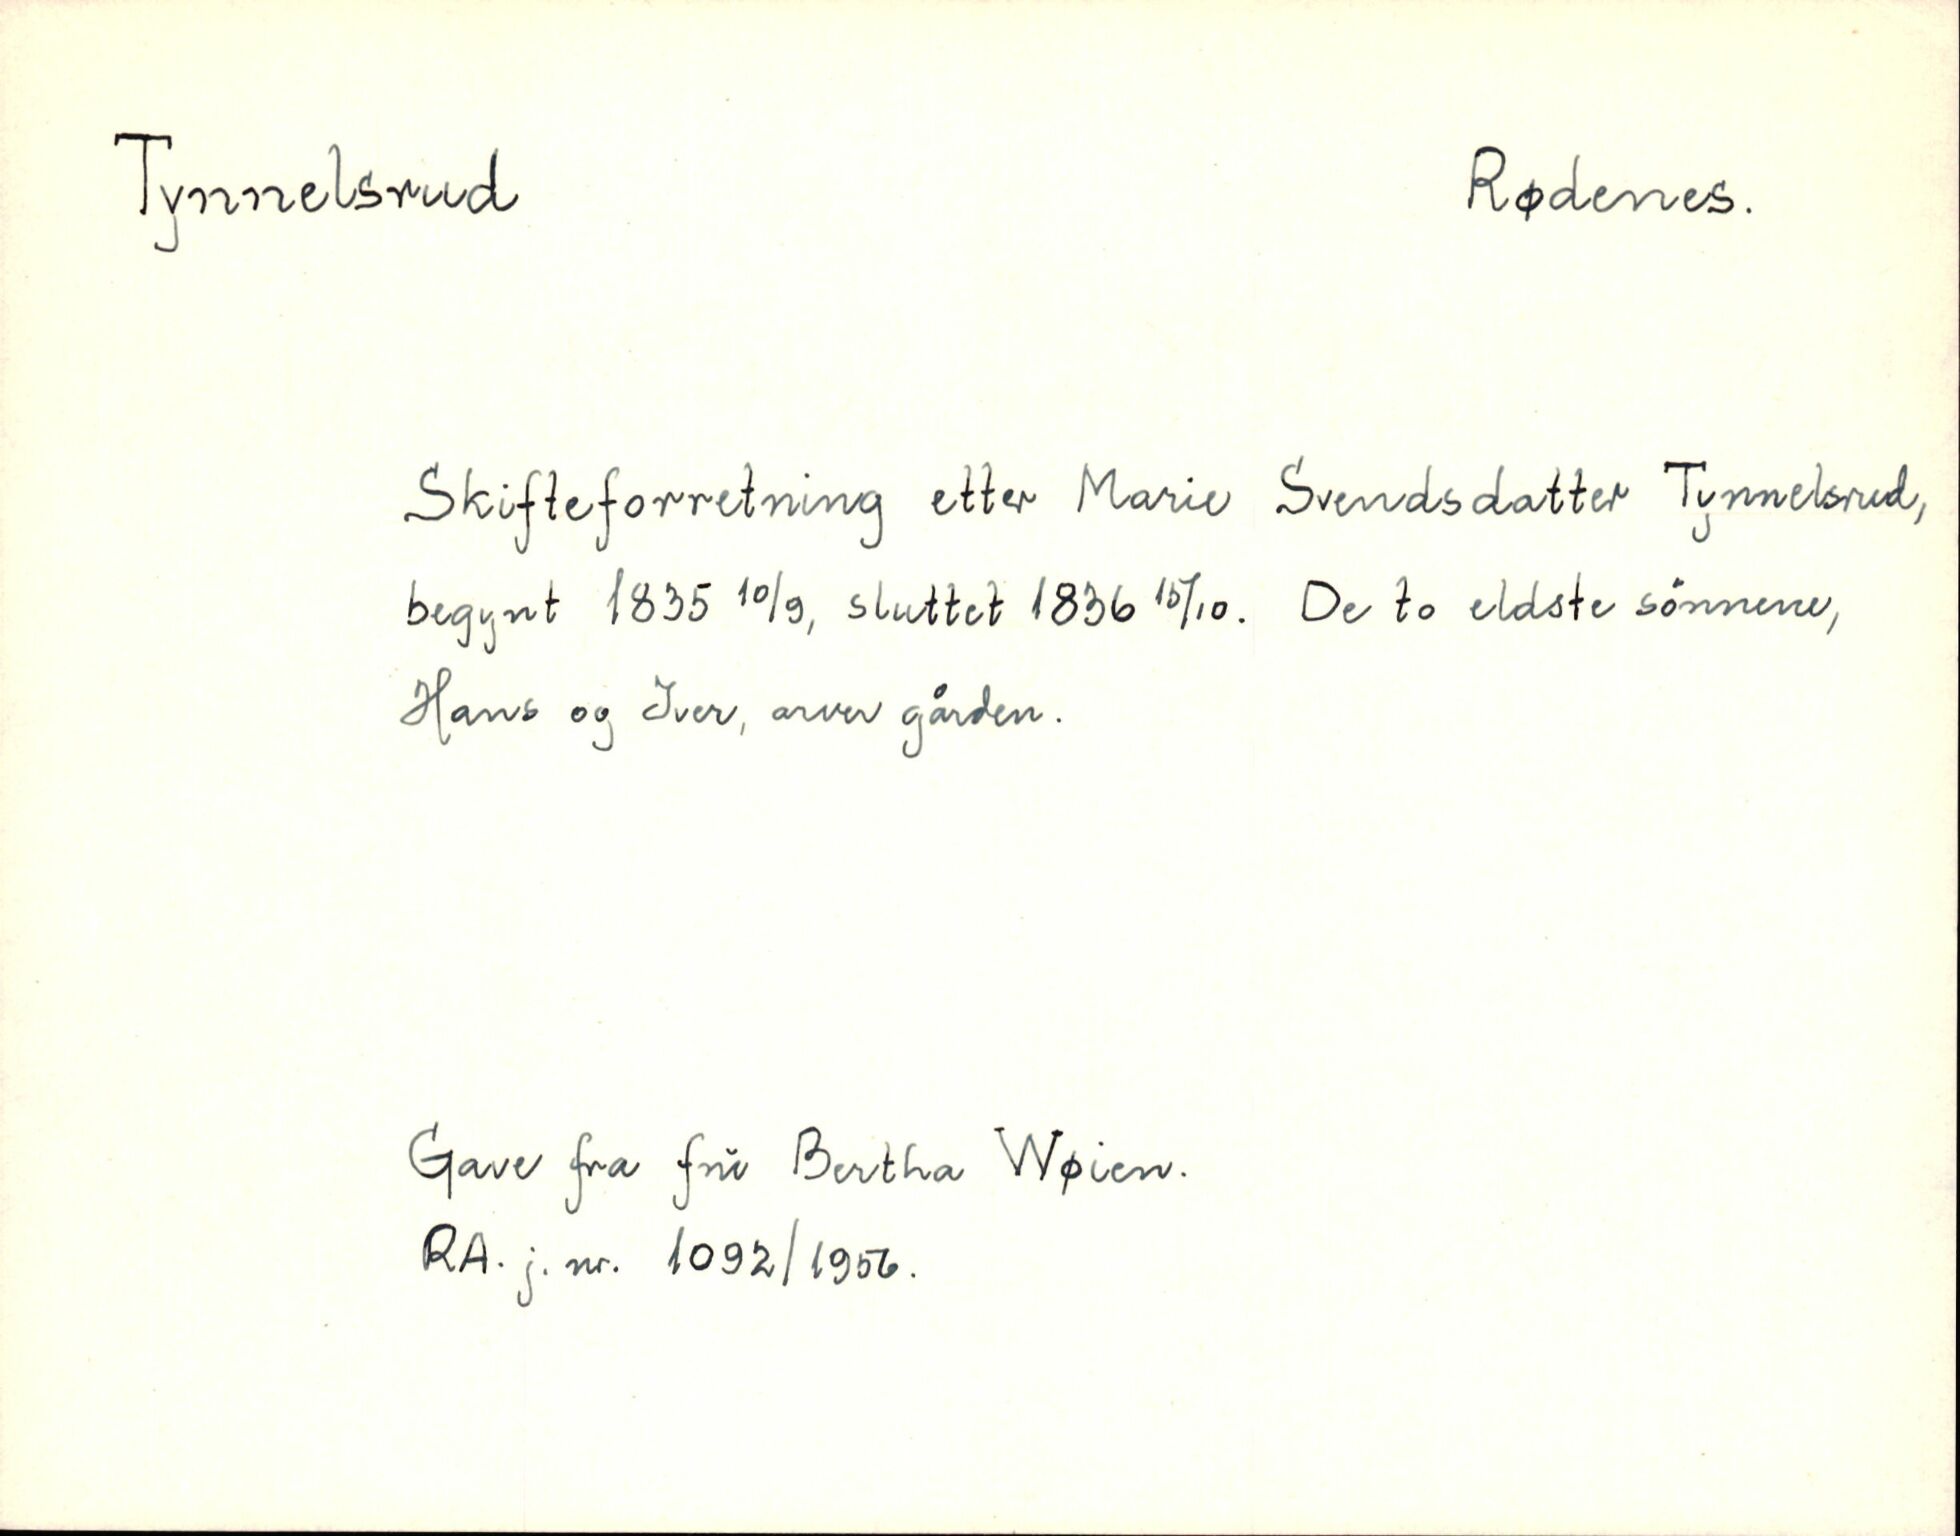 Tynnelsrud Rødenes.
Skifteforretning etter Marie Svendsdatter Tynnelsrud,
begynt 1835 10/9, sluttet 1836 15/10. De to eldste sönnene,
Hans og Iver, arver gården.
Gave fra fru Bertha Wøien.
RA. j. nr. 1092/1956.